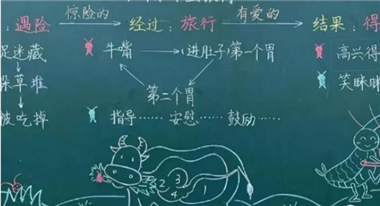 惊险的 有爱的
：遇险 经过：旅行 结果：得
迷藏 牛嘴 (进肚子)第一个胃 高兴得
草堆 第二个胃 笑眯眯
吃掉 指导……安慰……鼓励……
2 3
4